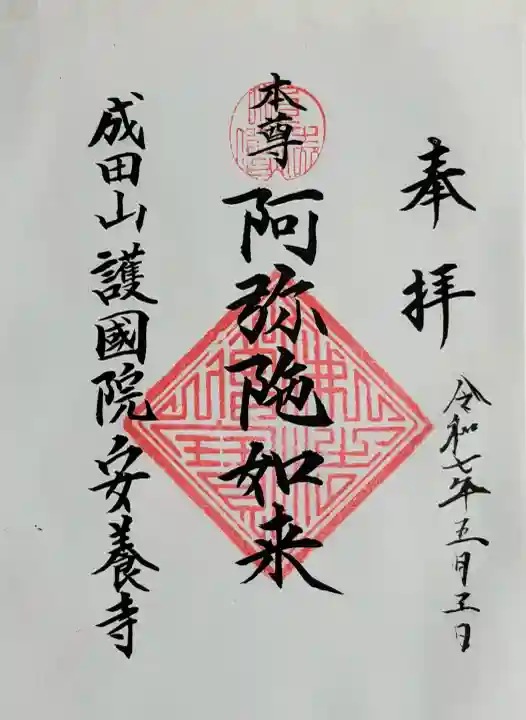 奉拝
令和七年五月三日
本尊
阿弥陀如来
成田山護國院安養寺